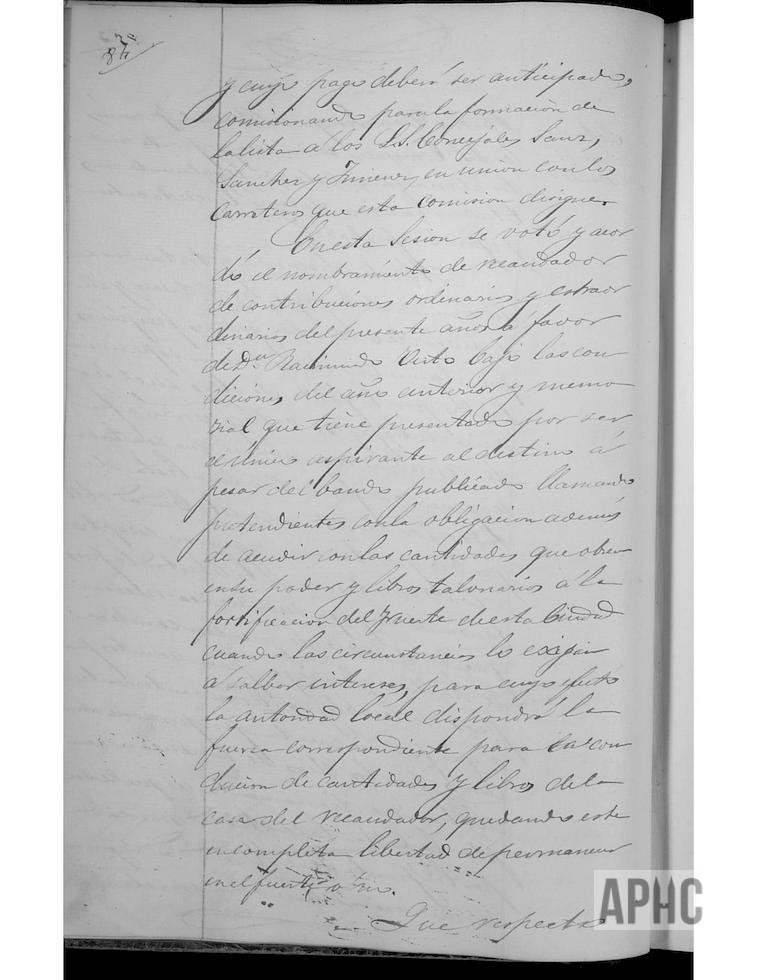 y cuyo pago deberá ser anticipado,
comisionando para la formacion de
la lista á los S.S. Concejales Sanz,
Sanchez y Jimenez, en union con los
carreteros que esta comision disigne.
En esta Sesion se votó y acor
dó el nombramiento de recaudador
de contribuciones ordinarias y estraor
dinarias del presente año á favor
de Dn Raimundo bajo las con
diciones del año anterior y memo
rial que tiene presentado por ser
el unico aspirante al destino á
pesar del bando publicado llamando
pretendientes con la obligacion ademas
de acudir con las cantidades que obren
en su poder y libros talonarios á la
fortificacion del Fuerte de esta Ciudad
cuando las circunstancias lo exijan
á salbar intereses, para cuyo efecto
la autoridad local dispondrá la
fuerza correspondiente para la con
duccion de cantidades y libros de la
casa del recaudador, quedando este
en completa libertad de permanecer
en el fuerte o no.
Que respecto
APHC